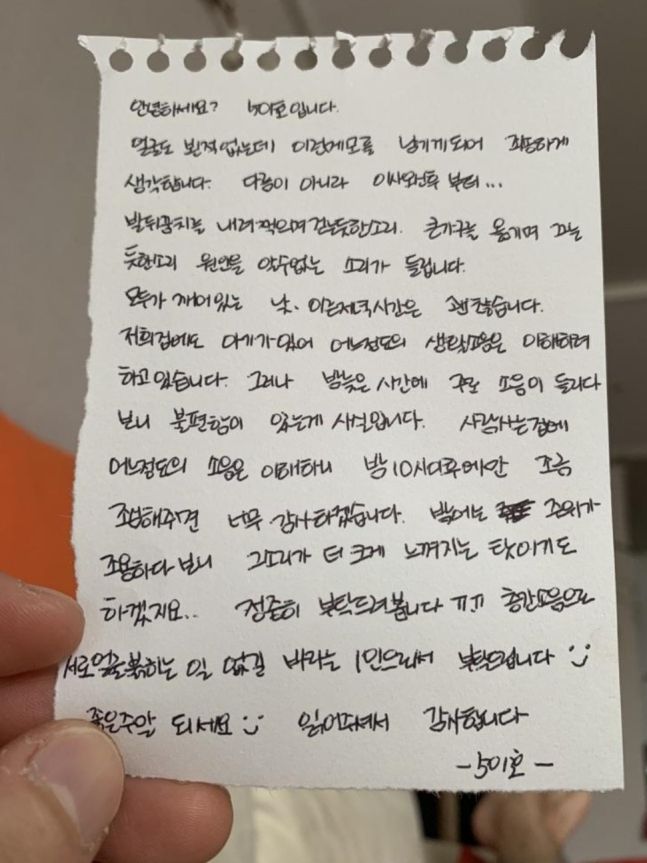 안녕하세요? 501호입니다.
얼굴도 본적없는데 이런메모를 남기게되어 죄송하게
생각합니다. 다름이 아니라 이사오신후 부터...
발뒤꿈치를 내려찍으며걷는듯한소리. 큰가구를 옮기며 끄는
듯한소리 원인을 알수없는 소리가 들립니다.
모두가 깨어있는 낮, 이른저녁시간은 괜찮습니다.
저희집에도 아기가있어 어느정도의 생활소음은 이해하려
하고있습니다. 그러나 밤늦은 시간에 주로 소음이 들리다
보니 불편함이 있는게 사실입니다. 사람사는집에
어느정도의 소음은 이해하니 밤10시이후에만 조금
조심해주면 너무 감사하겠습니다. 밤에는 주위가
조용하다 보니 그소리가 더 크게 느껴지는 탓이기도
하겠지요.. 정중히 부탁드려봅니다 ㅠㅠ 층간소음으로
서로얼굴붉히는 일 없길 바라는 1인으로서 부탁드립니다 :)
좋은주말 되세요 :) 읽어주셔서 감사합니다
-501호-